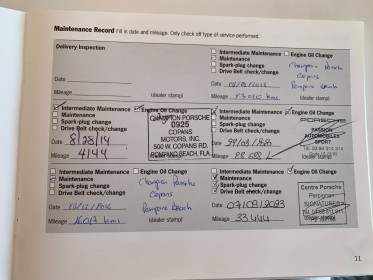 Maintenance Record Fill in date and mileage. Only check off type of service performed.
Delivery Inspection
Date
Mileage
(dealer stamp)
Intermediate Maintenance Engine Oil Change
Maintenance
Spark-plug change
Drive Belt check/change
Champion Porsche
Copans
Pompano Beach
Date
Mileage
(dealer stamp)
Intermediate Maintenance Engine Oil Change
Maintenance
Spark-plug change
Drive Belt check/change
CHAMPION PORSCHE
0925
COPANS
MOTORS, INC.
500 W. COPANS RD.
POMPANO BEACH, FLA
Date 8/28/14
Mileage 4144
(dealer stamp)
Intermediate Maintenance Engine Oil Change
Maintenance
Spark-plug change
Drive Belt check/change
PORSCHE
PASSION
AUTOMOBILES
SPORT
Date
Mileage
(dealer stamp)
Intermediate Maintenance Engine Oil Change
Maintenance
Spark-plug change
Drive Belt check/change
Champion Porsche
Copans
Pompano Beach
Date
Mileage
(dealer stamp)
Intermediate Maintenance Engine Oil Change
Maintenance
Spark-plug change
Drive Belt check/change
Centre Porsche
Perpignan
SIGNATURES
Date 07/08/2023
Mileage 33.444
(dealer stamp)
11